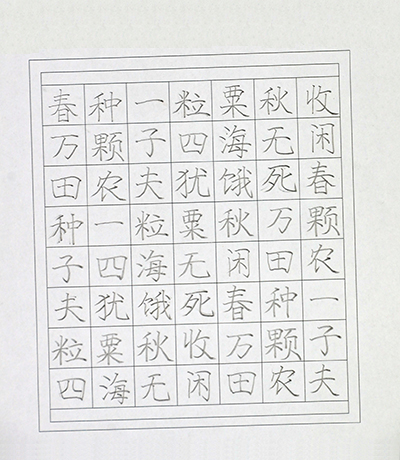 春种一粒粟秋收
万颗子四海无闲
田农夫犹饿死春
种一粒粟秋万颗
子四海无闲田农
夫犹饿死春种一
粒粟秋收万颗子
四海无闲田农夫